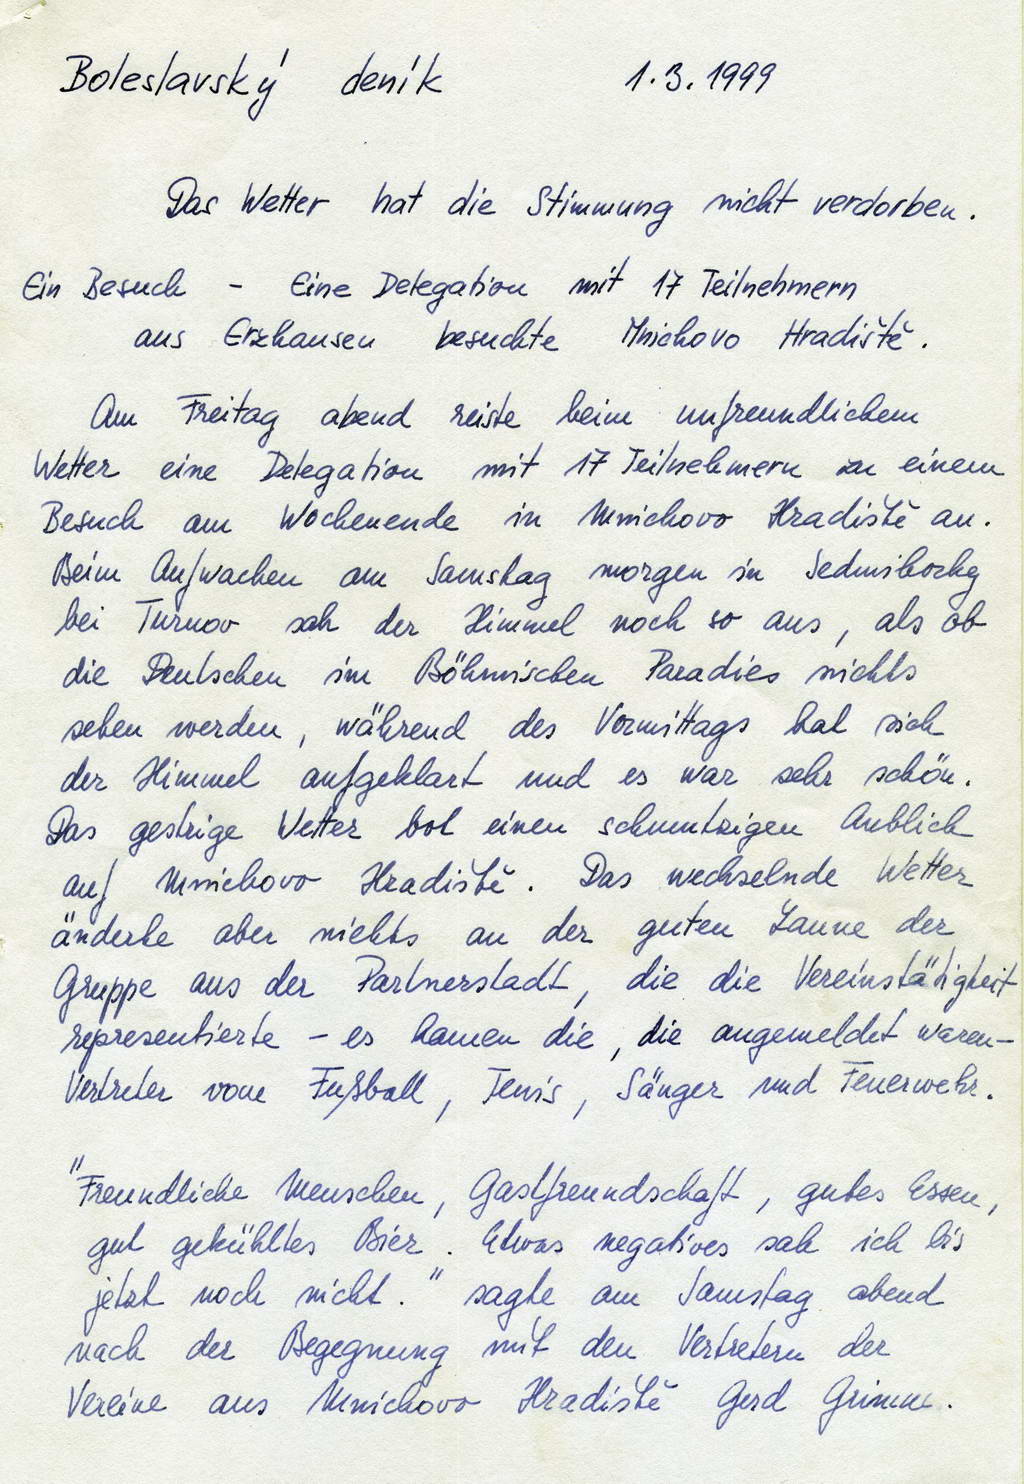 Boleslavský deník 1.3.1999
Das Wetter hat die Stimmung nicht verdorben.
Ein Besuch - Eine Delegation mit 17 Teilnehmern
aus Erzhausen besuchte Mnichovo Hradiště.
Am Freitag abend reiste beim unfreundlichem
Wetter eine Delegation mit 17 Teilnehmern zu einem
Besuch am Wochenende in Mnichovo Hradiště an.
Beim Aufwachen am Samstag morgen in Sedmihorky
bei Turnov sah der Himmel noch so aus, als ob
die Deutschen im Böhmischen Paradies nichts
sehen werden, während des Vormittags hat sich
der Himmel aufgeklart und es war sehr schön.
Das gestrige Wetter bot einen schmutzigen Anblick
auf Mnichovo Hradiště. Das wechselnde Wetter
änderte aber nichts an der guten Laune der
Gruppe aus der Partnerstadt, die die Vereinstätigkeit
representierte - es kamen die, die angemeldet waren-
Vertreter vom Fußball, Tenis, Sänger und Feuerwehr.
"Freundliche Menschen, Gastfreundschaft, gutes Essen,
gut gekühltes Bier. Etwas negatives sah ich bis
jetzt noch nicht." sagte am Samstag abend
nach der Begegnung mit den Vertretern der
Vereine aus Mnichovo Hradiště Gerd Grimm.